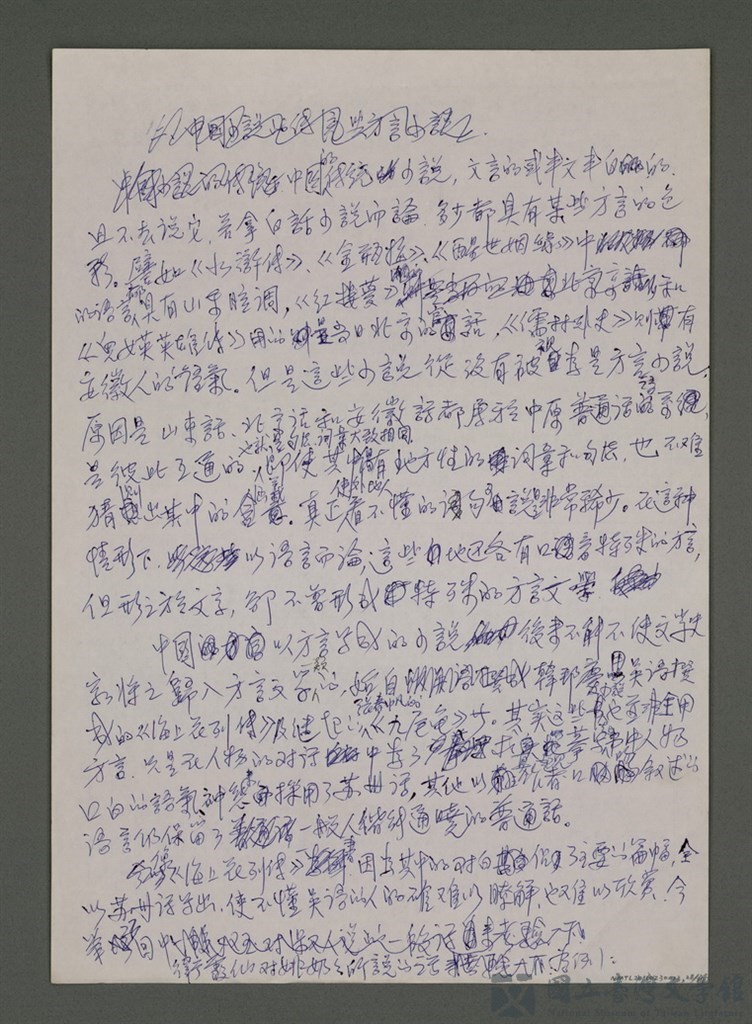 從中國小說的傳統看方言小說
中國傳統小說，文言的或半文半白的，
且不去說它，若拿白話小說而論，多少都具有某些方言的色
彩。譬如《水滸傳》、《金瓶梅》、《醒世姻緣》中
的語言都具有山東腔調，《紅樓夢》和
《兒女英雄傳》用的是當日北京的官話，《儒林外史》則有
安徽人的語氣。但是這些小說從沒有被視為是方言小說，
原因是山東話、北京話和安徽話都屬於中原普通話的系統，
是彼此互通的，也就是句法、詞彙大致相同，即使其中有地方性的詞彙和句法，也不難
猜出其中的含義。真正使外地人看不懂的語句可說是非常稀少。在這種
情形下，以語言而論，這些地區各有口音特殊的方言，
但形之於文字，卻不曾形成特殊的方言文學。
中國以方言寫成的小說，後來不能不使文學史
家將之歸入方言文學的，始自韓邦慶用吳語撰
成的《海上花列傳》及繼起張春帆的《九尾龜》等。其實這些也並非全用
方言，只是在人物的對話中為了摹寫出人物
口白的語氣、神態而採用了蘇州話，其他以敘述的
語言仍保留了一般人皆能通曉的普通話。
像《海上花列傳》一書，因為其中的對白佔了主要的篇幅，全
以蘇州話寫出，使不懂吳語的人的確難以瞭解，也難以欣賞。今
舉
衛霞仙對姚奶奶所說的話